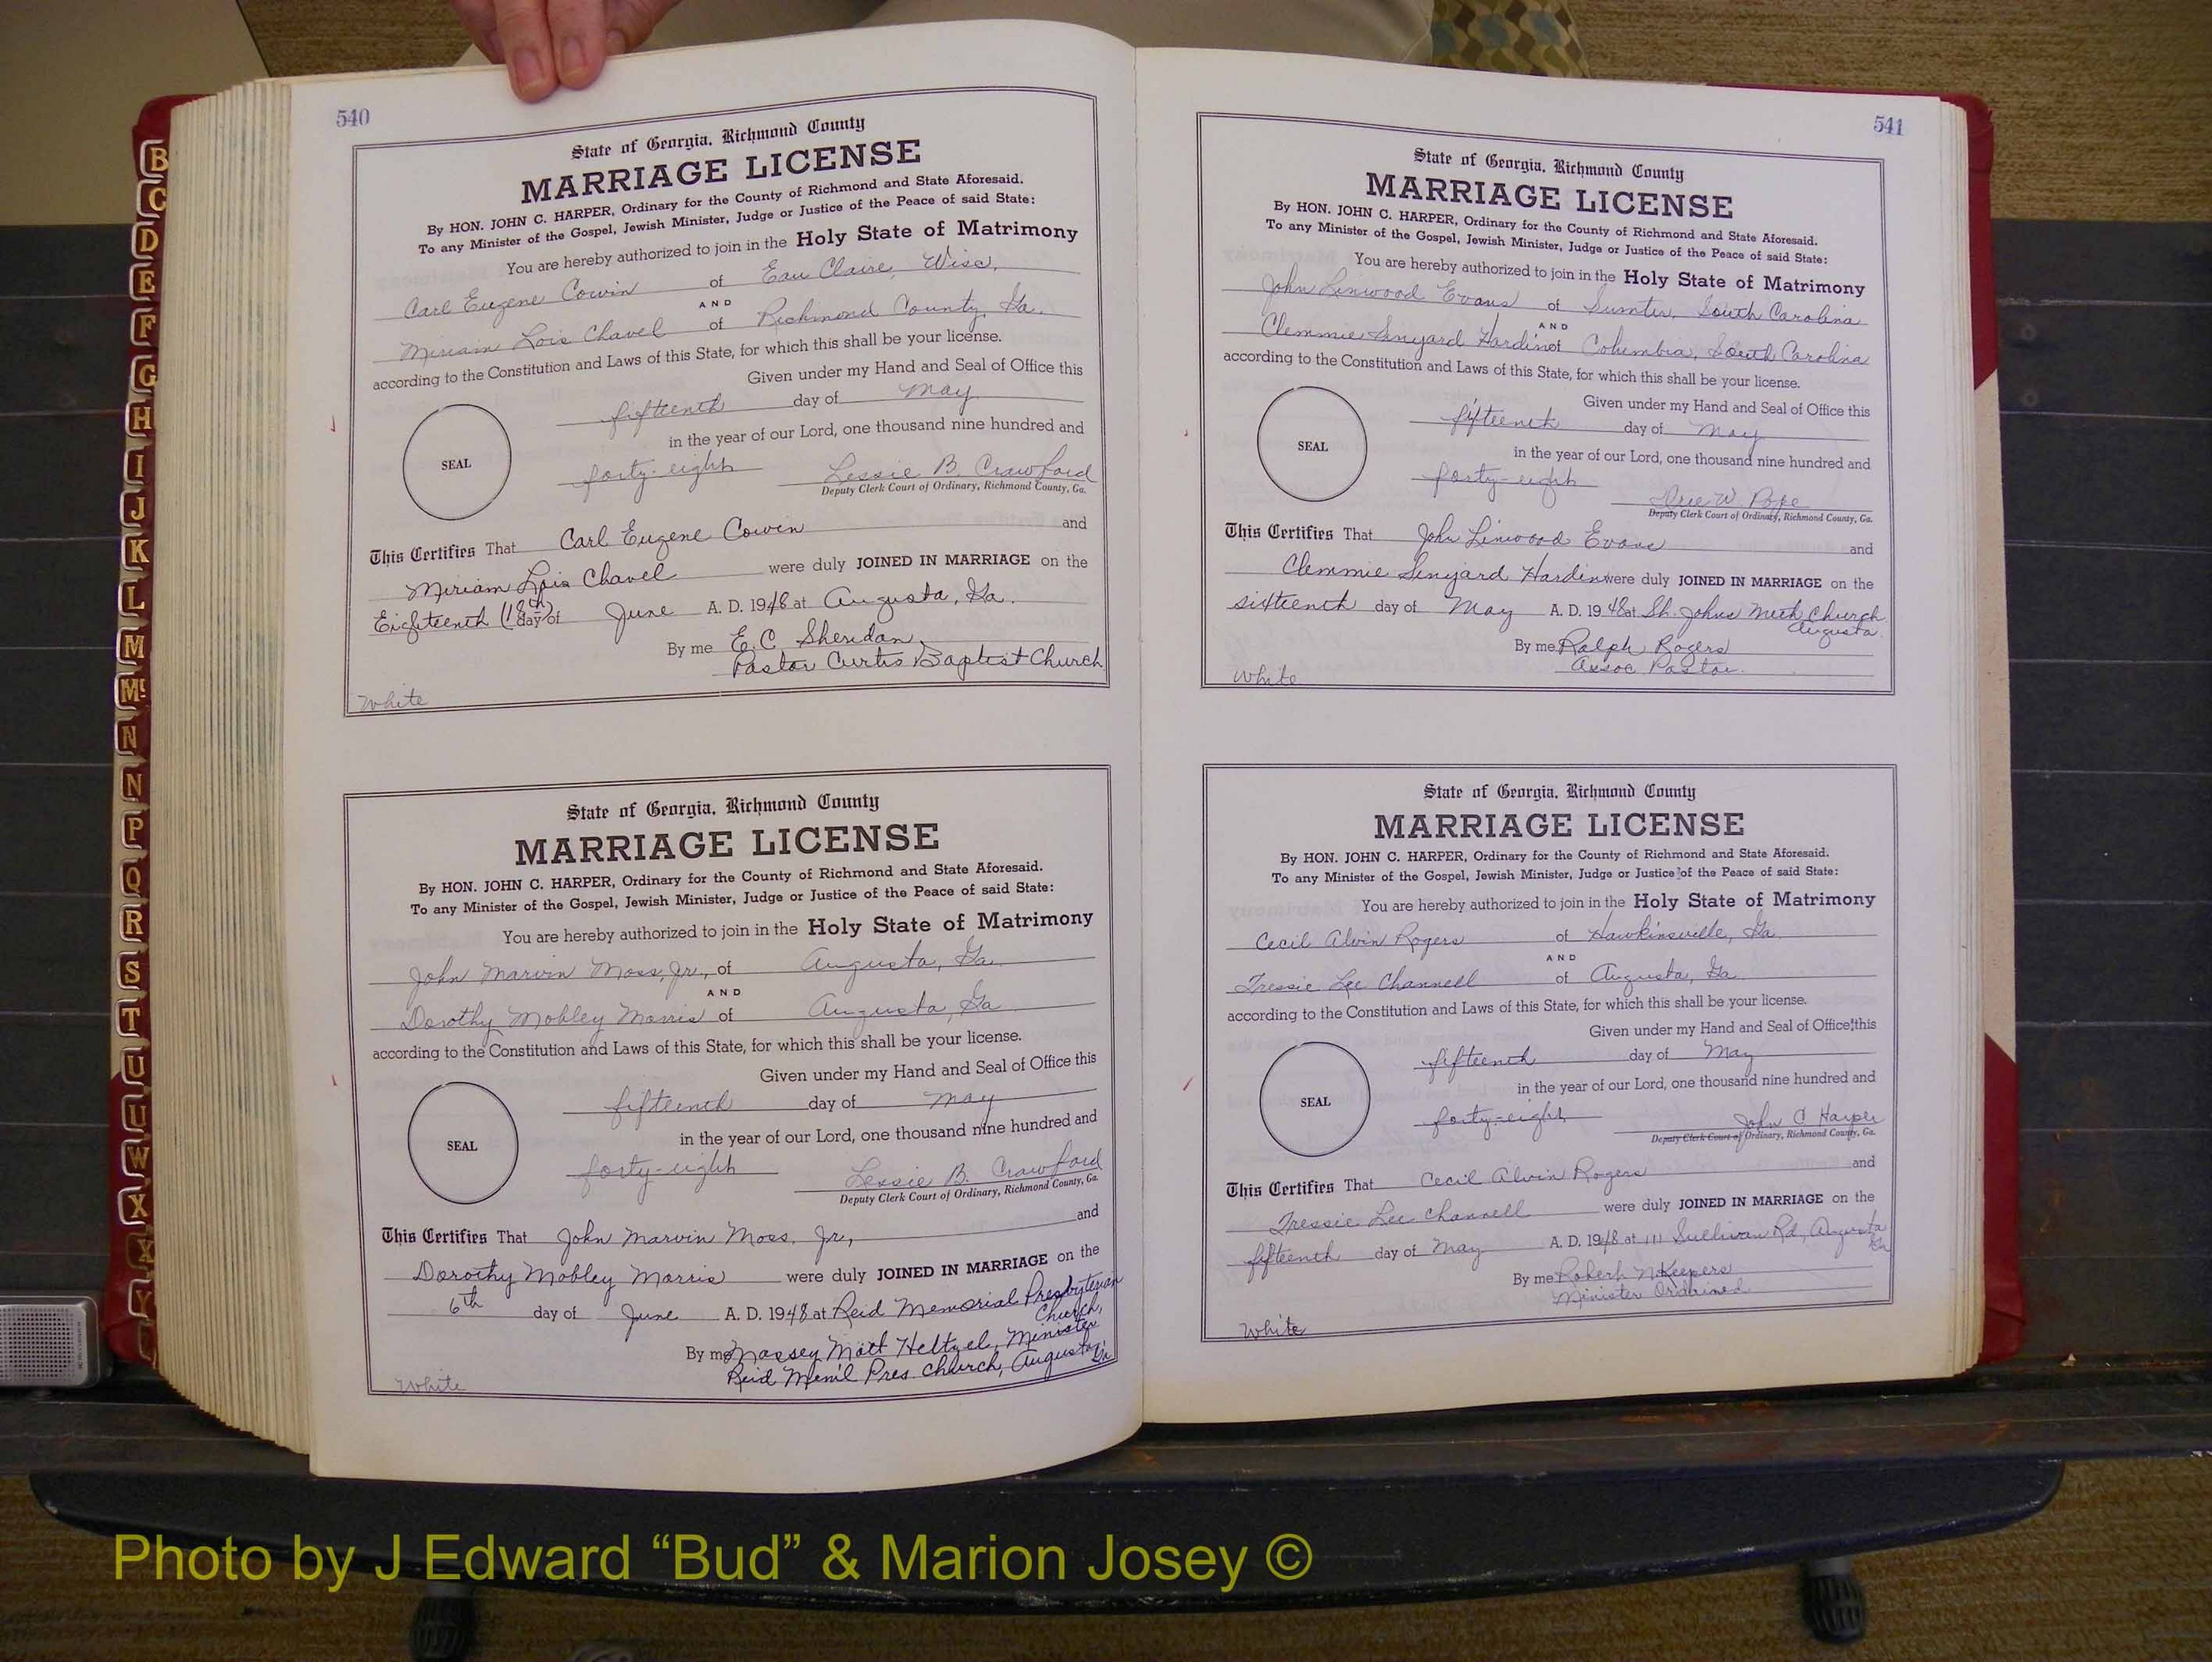 540
State of Georgia, Richmond County
MARRIAGE LICENSE
By HON. JOHN C. HARPER, Ordinary for the County of Richmond and State Aforesaid.
To any Minister of the Gospel, Jewish Minister, Judge or Justice of the Peace of said State:
You are hereby authorized to join in the Holy State of Matrimony
Carl Eugene Cowin of Eau Claire, Wisc.
AND
Miriam Lois Chavel of Richmond County, Ga.
according to the Constitution and Laws of this State, for which this shall be your license.
Given under my Hand and Seal of Office this
fifteenth day of May
in the year of our Lord, one thousand nine hundred and
SEAL
forty-eight Lessie B. Crawford
Deputy Clerk Court of Ordinary, Richmond County, Ga.
This Certifies That Carl Eugene Cowin and
Miriam Lois Chavel were duly JOINED IN MARRIAGE on the
Eighteenth (18th) day of June A. D. 1948 at Augusta, Ga.
By me E. C. Sheridan,
Pastor Curtis Baptist Church
White
State of Georgia, Richmond County
MARRIAGE LICENSE
By HON. JOHN C. HARPER, Ordinary for the County of Richmond and State Aforesaid.
To any Minister of the Gospel, Jewish Minister, Judge or Justice of the Peace of said State:
You are hereby authorized to join in the Holy State of Matrimony
John Marvin Moss, Jr., of Augusta, Ga.
AND
Dorothy Mobley Morris of Augusta, Ga
according to the Constitution and Laws of this State, for which this shall be your license.
Given under my Hand and Seal of Office this
fifteenth day of May
in the year of our Lord, one thousand nine hundred and
SEAL
forty-eight Lessie B. Crawford
Deputy Clerk Court of Ordinary, Richmond County, Ga.
This Certifies That John Marvin Moss, Jr., and
Dorothy Mobley Morris were duly JOINED IN MARRIAGE on the
6th day of June A. D. 1948 at Reid Memorial Presbyterian
Church,
By me Massey Mott Heltzel, Minister
Reid Mem'l Pres. Church, Augusta, Ga.
White
541
State of Georgia, Richmond County
MARRIAGE LICENSE
By HON. JOHN C. HARPER, Ordinary for the County of Richmond and State Aforesaid.
To any Minister of the Gospel, Jewish Minister, Judge or Justice of the Peace of said State:
You are hereby authorized to join in the Holy State of Matrimony
John Linwood Evans of Sumter, South Carolina
AND
Clemmie Senyard Hardin of Columbia, South Carolina
according to the Constitution and Laws of this State, for which this shall be your license.
Given under my Hand and Seal of Office this
fifteenth day of May
in the year of our Lord, one thousand nine hundred and
SEAL
forty-eight W. Pope
Deputy Clerk Court of Ordinary, Richmond County, Ga.
This Certifies That John Linwood Evans and
Clemmie Senyard Hardin were duly JOINED IN MARRIAGE on the
sixteenth day of May A. D. 1948 at St. Johns Meth. Church
Augusta
By me Ralph Rogers
Assoc. Pastor
White
State of Georgia, Richmond County
MARRIAGE LICENSE
By HON. JOHN C. HARPER, Ordinary for the County of Richmond and State Aforesaid.
To any Minister of the Gospel, Jewish Minister, Judge or Justice of the Peace of said State:
You are hereby authorized to join in the Holy State of Matrimony
Cecil Alvin Rogers of Hawkinsville, Ga.
AND
Tressie Lee Channell of Augusta, Ga
according to the Constitution and Laws of this State, for which this shall be your license.
Given under my Hand and Seal of Office this
fifteenth day of May
in the year of our Lord, one thousand nine hundred and
SEAL
forty-eight John C Harper
Deputy Clerk Court of Ordinary, Richmond County, Ga.
This Certifies That Cecil Alvin Rogers and
Tressie Lee Channell were duly JOINED IN MARRIAGE on the
fifteenth day of May A. D. 1948 at 111 Sullivan Rd, Augusta
Ga
By me Robert N. Keepers
Minister Ordained
White
B
C
D
E
F
G
H
I
J
K
L
M
Mc
N
N
P
Q
R
S
T
U
U
W
X
X
Y
Photo by J Edward “Bud” & Marion Josey ©